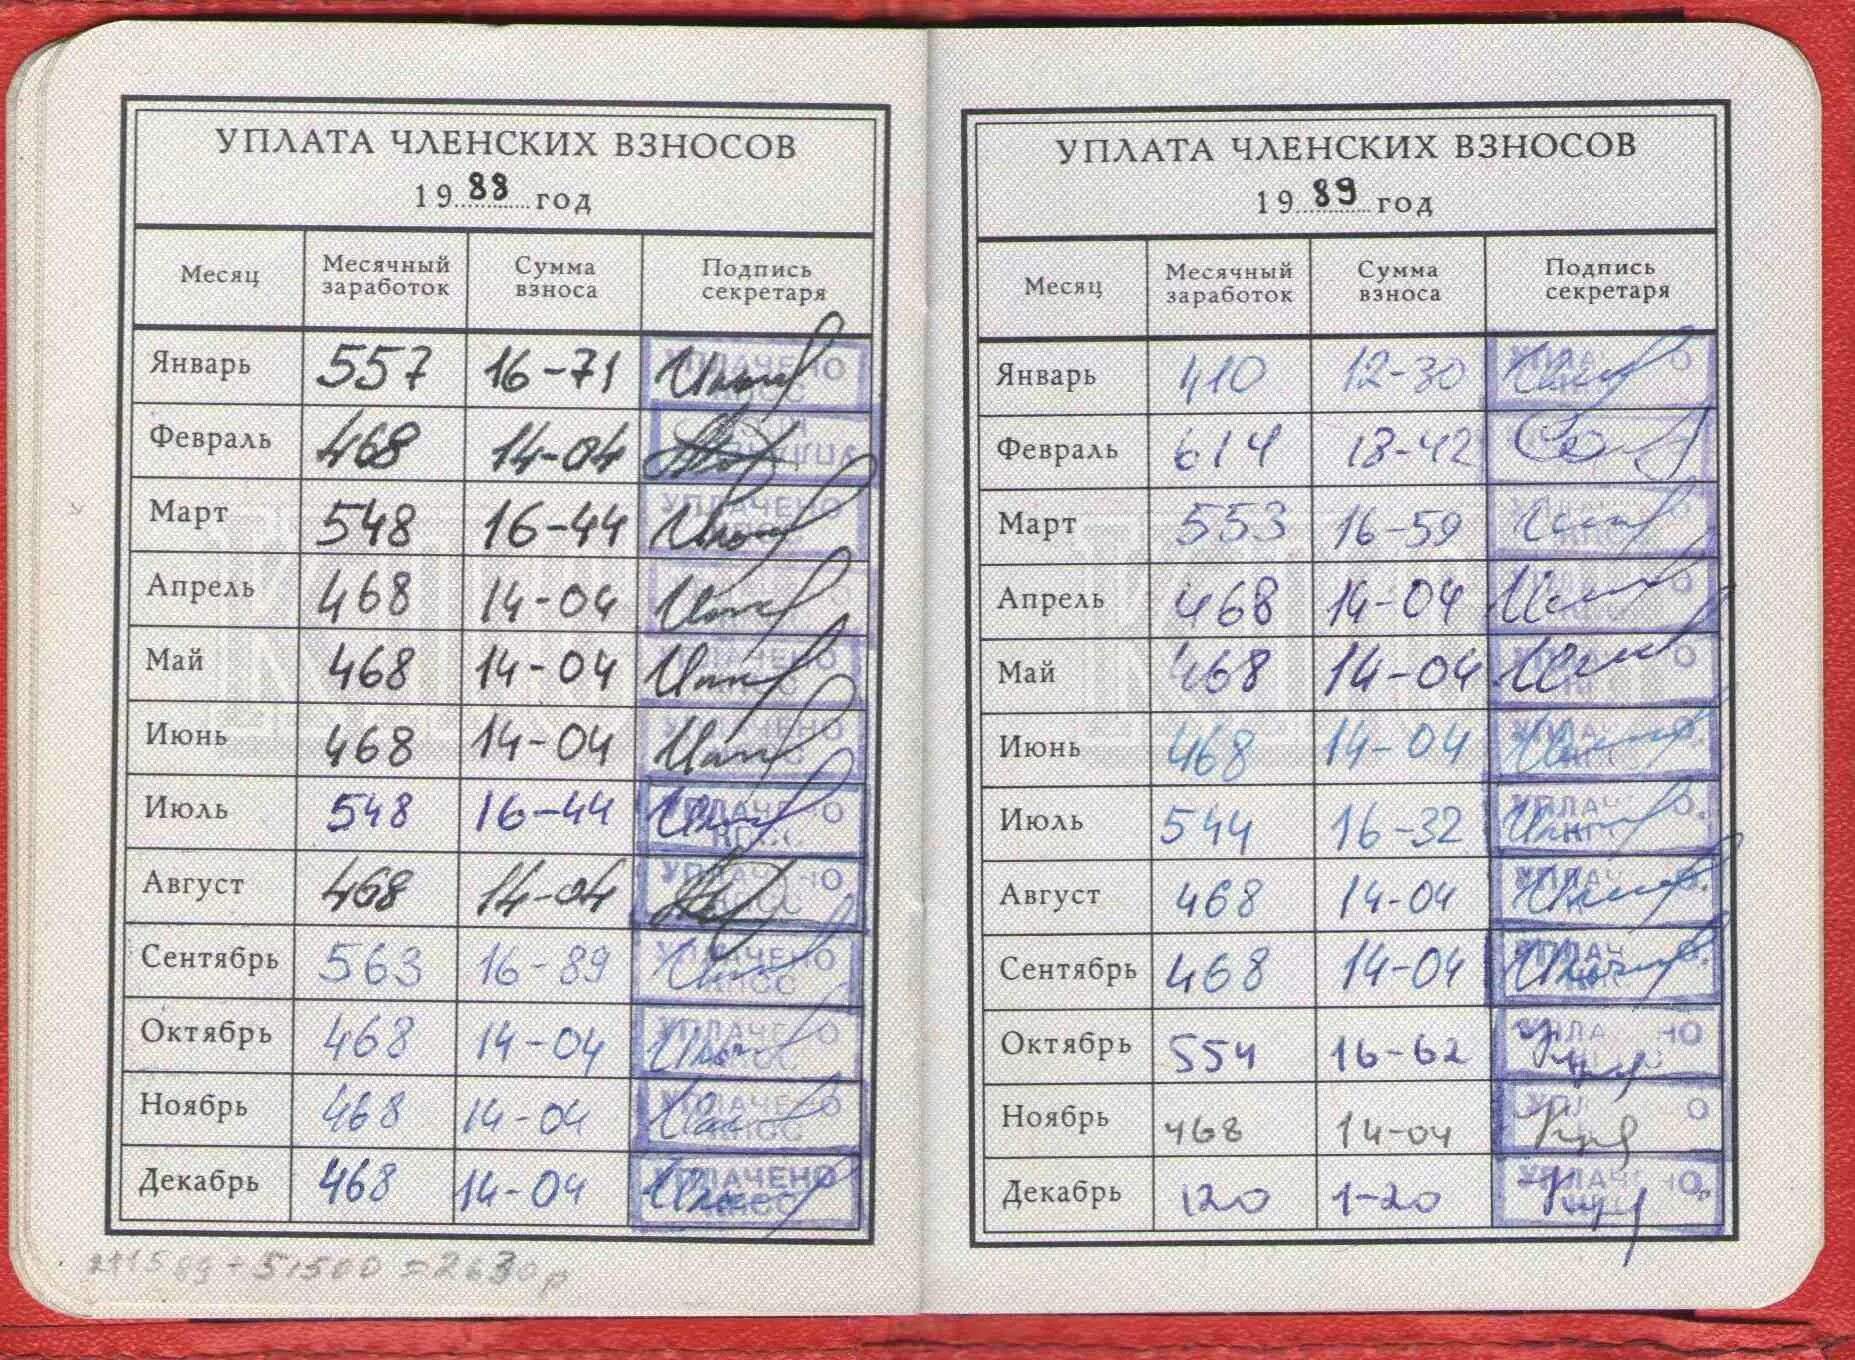 УПЛАТА ЧЛЕНСКИХ ВЗНОСОВ
1988 год
Месяц Месячный заработок Сумма взноса Подпись секретаря
Январь 557 16-71 УПЛАЧЕНО
Февраль 468 14-04
Март 548 16-44 УПЛАЧЕНО
Апрель 468 14-04
Май 468 14-04 УПЛАЧЕНО
Июнь 468 14-04 УПЛАЧЕНО
Июль 548 16-44 УПЛАЧЕНО
Август 468 14-04 УПЛАЧЕНО
Сентябрь 563 16-89 УПЛАЧЕНО КПСС
Октябрь 468 14-04 УПЛАЧЕНО КПСС
Ноябрь 468 14-04 УПЛАЧЕНО КПСС
Декабрь 468 14-04 УПЛАЧЕНО КПСС
УПЛАТА ЧЛЕНСКИХ ВЗНОСОВ
1989 год
Месяц Месячный заработок Сумма взноса Подпись секретаря
Январь 410 12-30
Февраль 614 18-42
Март 553 16-59
Апрель 468 14-04
Май 468 14-04
Июнь 468 14-04
Июль 544 16-32
Август 468 14-04
Сентябрь 468 14-04
Октябрь 554 16-62
Ноябрь 468 14-04
Декабрь 120 1-20